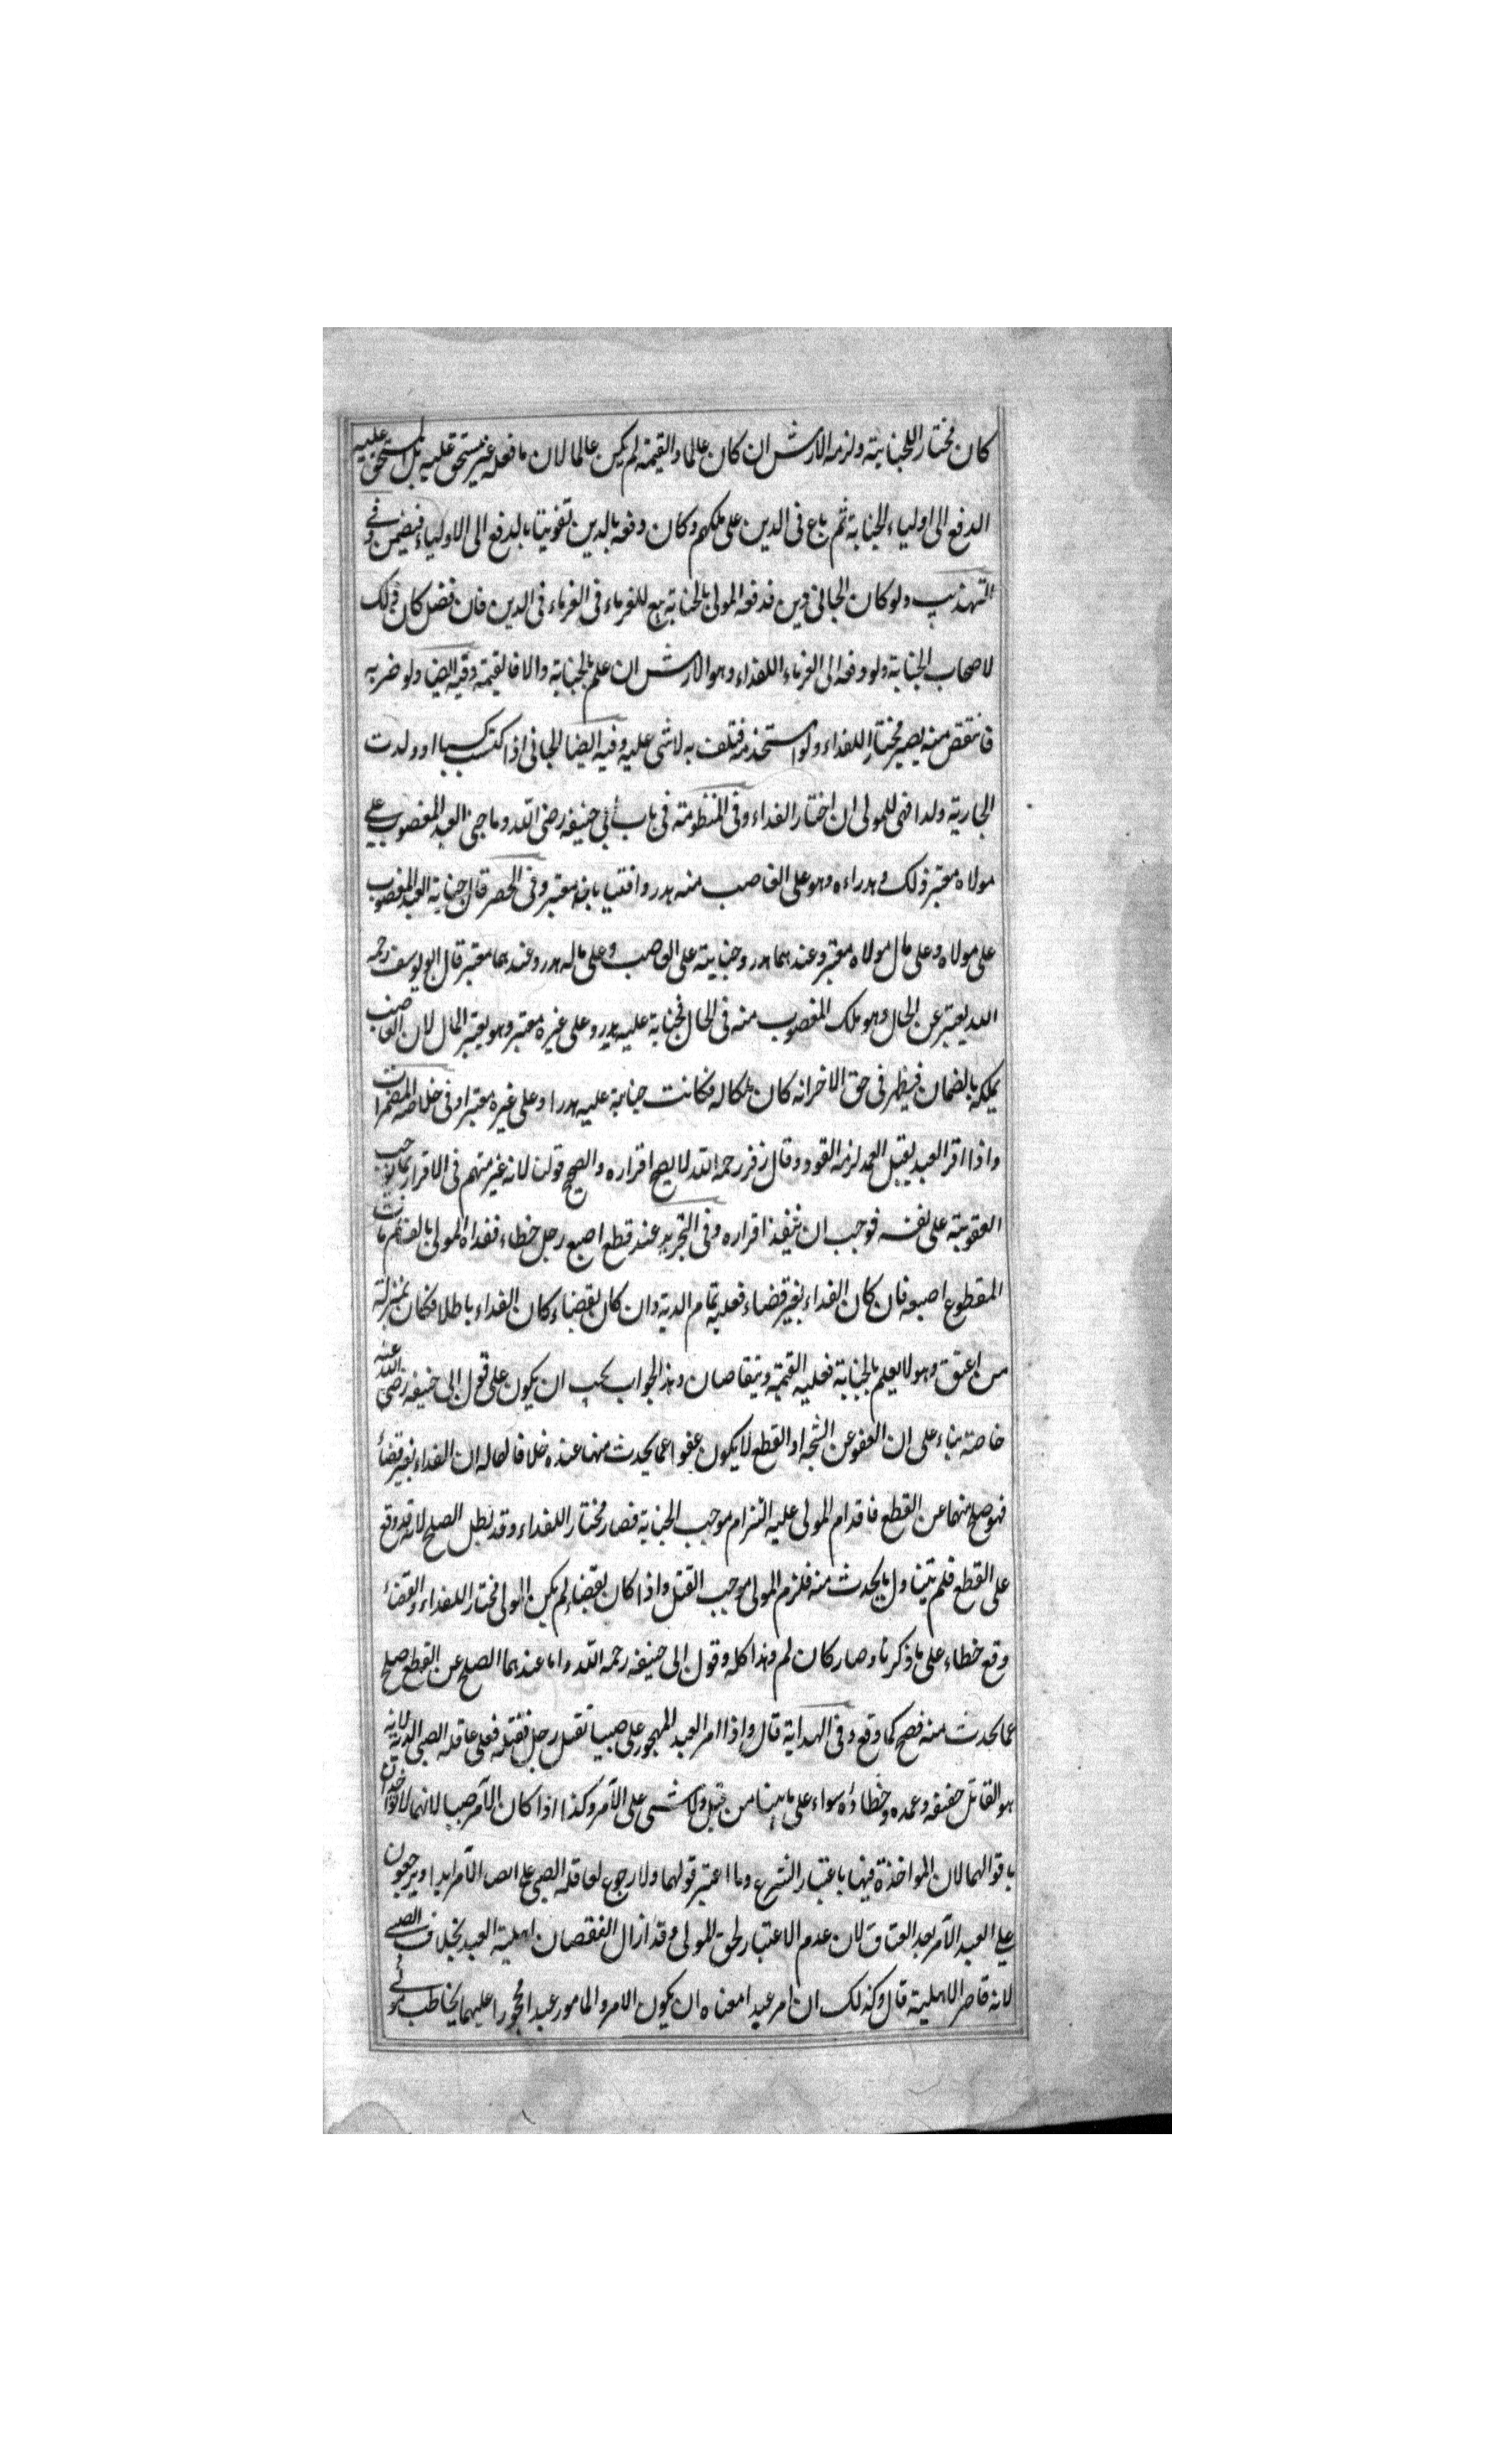 كان مختار اللجناية ولزمه الارش ان كان عالما والقيمة لم يكن عالما لان ما فعله غير مستحق عليه بل المستحق عليه
الدفع الى اولياء الجناية ثم باع فى الدين على ملكهم وكان دفعه بالدين تفويتا بالدفع الى الاولياء فيضمن وفى
التهذيب ولو كان الجانى دين فدفعه المولى بالجناية بيع للغرماء فى الغرماء فى الدين فان فضل كان ذلك
لاصحاب الجناية ولو دفعه الى الغرماء اللفداء وهو الارش ان علم بالجناية والا فالقيمة وفيه ايضا ولو ضربه
فانتقص منه يصير مختار اللفداء ولو استخدمه فتلف به لا شى عليه وفيه ايضا الجانى اذا اكتسب كسبا او ولدت
الجارية ولدا فهى للمولى ان اختار الفداء وفى المنظومة فى باب ابى حنيفه رضى الله وما جنى العبد المغصوب على
مولاه معتبر ذلك وهدراه وهو على الغاصب منه هدر وافتيا بانه معتبر وفى الحصر قال جناية العبد المغصوب
على مولاه وعلى مال مولاه معتبر وعندهما هدر وجنايته على الغاصب وعلى ماله هدر وعندهما معتبر قال ابو يوسف رحمه
الله يعتبر عن الحال وهو ملك المغصوب منه فى الحال فجناية عليه هدر وعلى غيره معتبر وهو يعتبر المال لان الغاصب
يملكه بالضمان فيظهر فى حق الاخر انه كان ملكا له فكانت جناية عليه هدرا وعلى غيره معتبرا وفى خلاصة المضمرات
واذا اقر العبد بقتل العمد لزمه القود وقال زفر رحمه الله لا يصح اقراره والصحيح قولنا لانه غير متهم فى الاقرار بما يوجب
العقوبة على نفسه فوجب ان ينفذ اقراره وفى التجريد عبد قطع اصبع رجل خطاء ففداه المولى بالف ثم مات
المقطوع اصبعه فان كان الفداء بغير قضاء فعليه تمام الدية وان كان بقضاء كان الفداء باطلا فكان بمنزلة
من اعتق وهو لا يعلم بالجناية فعليه القيمة ويتقاصان وهذ الجواب يجب ان يكون على قول ابى حنيفه رضى الله عنه
خاصة بناء على ان العفو عن الشجه او القطع لا يكون عفوا عما يحدث منها عنده خلافا لهما له ان الفداء بغير قضأ
فهو صلح منهما عن القطع فاقدام المولى عليه التزام موجب الجناية فصار مختار اللفداء وقد بطل الصلح لانه وقع
على القطع فلم يتناول ما يحدث منه فلزم المولى موجب القتل واذا كان بقضاء لم يكن المولى مختار اللفداء والقضأ
وقع خطاء على ما ذكرنا وصار كان لم وهذا كله وقول ابى حنيفه رحمه الله واما عندهما الصلح عن القطع صلح
عما يحدث منه فصح كما وقع وفى الهداية قال واذا امر العبد المهجور على صبيا بقتل رجل فقتله فعلى عاقلة الصبى الدية لانه
هو القاتل حقيقه وعمده وخطاؤه سواء على ما بينا من قبل ولا شى على الآمر وكذا اذا كان الآمر صبيا لانهما لا يواخذان
باقوالهما لان المواخذة فيها باعتبار الشرع وما اعتبر قولهما ولا رجوع لعاقلة الصبى على الصبى الآمر ابدا ويرجعون
على العبد الآمر بعد العتاق لان عدم الاعتبار لحق المولى وقد زال لا لنقصان اهلية العبد بخلاف الصبى
لانه قاصر الاهلية قال وكذلك ان امر عبدا معناه ان يكون الامر والمامور عبدا محجورا عليهما يخاطب مولى